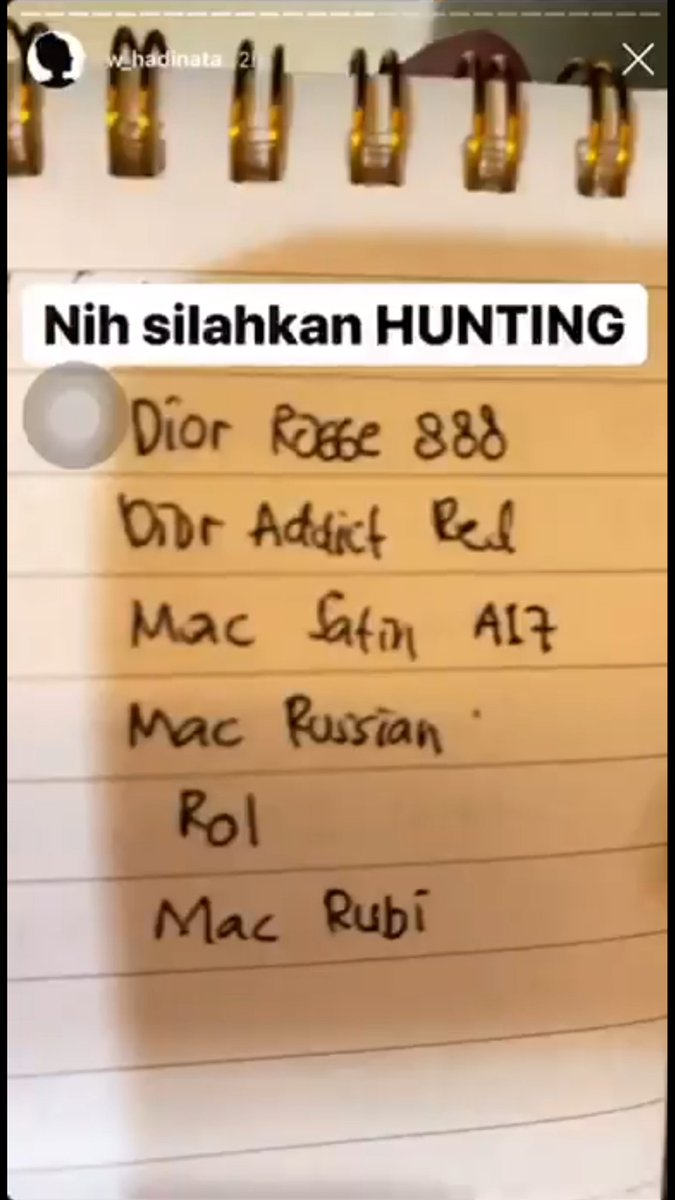 w_hadinata 2j
Nih silahkan HUNTING
Dior Rosse 888
Dior Addict Red
Mac Satin A17
Mac Russian
Rol
Mac Rubi